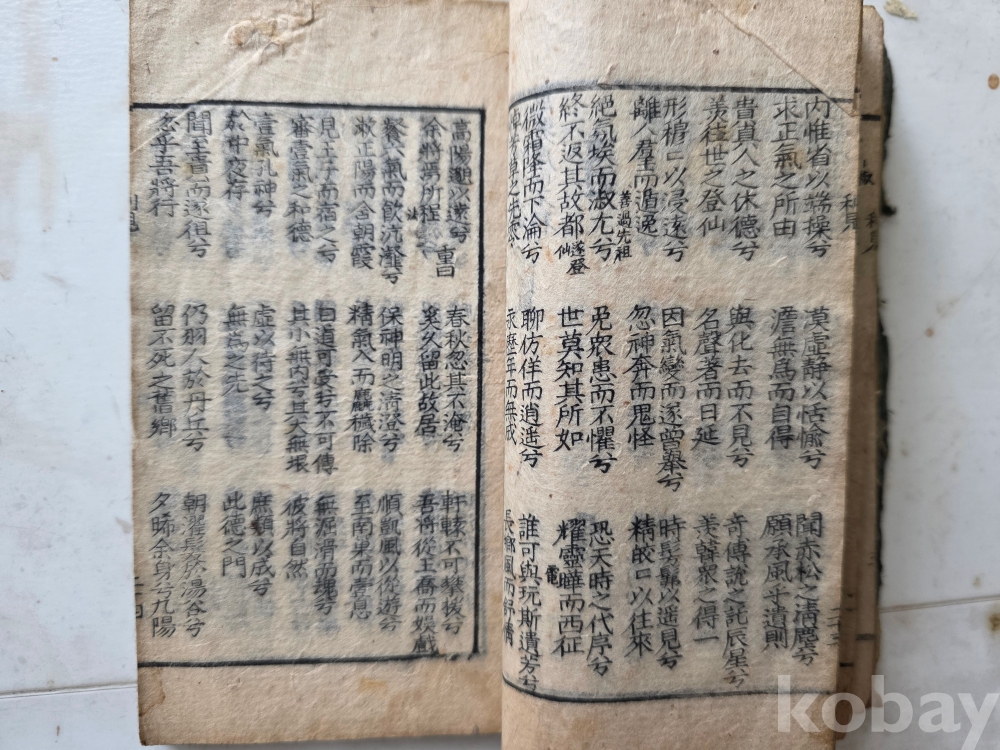 內惟省以端操兮
求正氣之所由
漠虛静以恬愉兮
澹無爲而自得
聞赤松之清塵兮
願承風乎遺則
貴真人之休德兮
羨往世之登仙
與化去而不見兮
名聲著而日延
奇傅說之託辰星兮
羨韓眾之得一
形穆口以浸遠兮
離人羣而遁逸
因氣變而遂曾舉兮
忽神奔而鬼怪
時髣髴以遥見兮
精皎口以往來
絕氛埃而淑尤兮
善過先祖
終不返其故都
遂登仙
免衆患而不懼兮
世莫知其所如
恐天時之代序兮
耀靈曄而西征
電
微霜降而下淪兮
聊仿佯而逍遥兮
永歷年而無成
誰可與玩斯遺芳兮
長鄉風而舒情
高陽邈以遠兮
余將焉所程
法
重曰
春秋忽其不淹兮
奚久留此故居
軒轅不可攀援兮
吾將從王喬而娛戲
餐六氣而飲沆瀣兮
漱正陽而含朝霞
保神明之清澄兮
精氣入而麤穢除
順凱風以從遊兮
至南巢而壹息
見王子而宿之兮
審壹氣之和德
曰道可受兮不可傳
其小無內兮其大無垠
無滑而魂兮
彼將自然
壹氣孔神兮
於中夜存
虛以待之兮
無爲之先
庶類以成兮
此德之門
聞至貴而遂徂兮
忽乎吾將行
仍羽人於丹丘兮
留不死之舊鄉
朝濯髮於湯谷兮
夕晞余身兮九陽
kobay